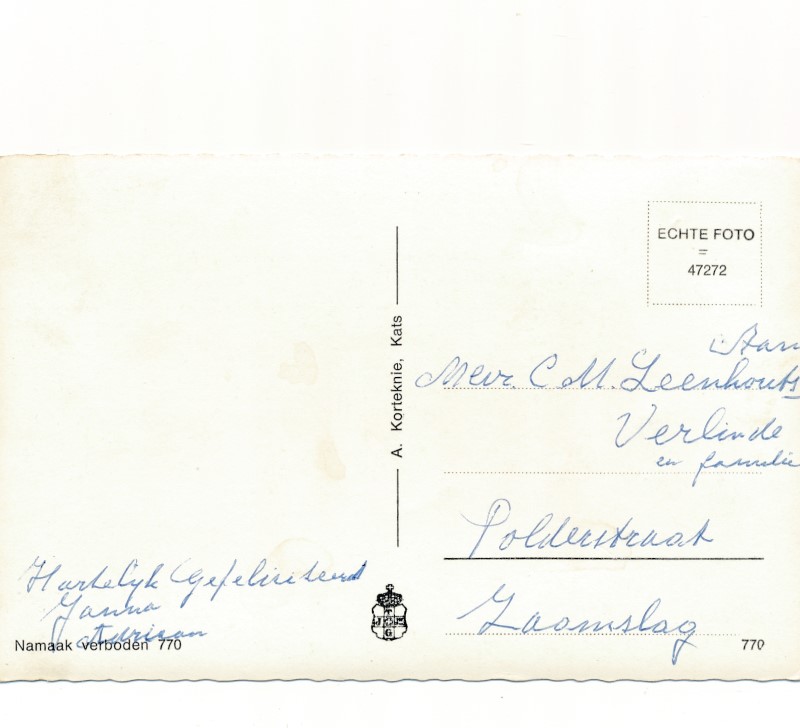 ECHTE FOTO
=
47272
Aan
Mevr. C M. Leenhouts
Verlinde
en familie
Polderstraat
Zaamslag
A. Korteknie, Kats
Hartelyk Gefeliciteerd
Janna
Adriaan
Namaak verboden 770
770